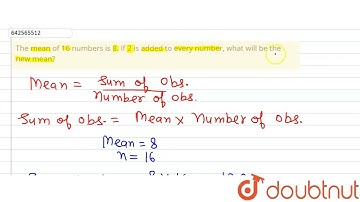 642565512
The mean of 16 numbers is 8. If 2 is added to every number, what will be the
new mean?
Mean = Sum of Obs.
Number of obs.
Sum of obs. = Mean × Number of obs.
Mean = 8
n = 16
doubtnut